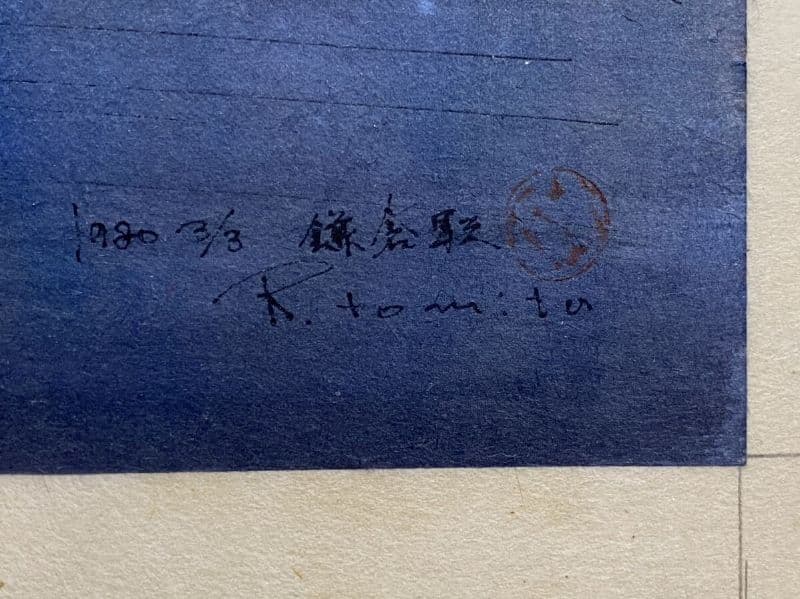 1980 3/3 鎌倉駅
K. tomita